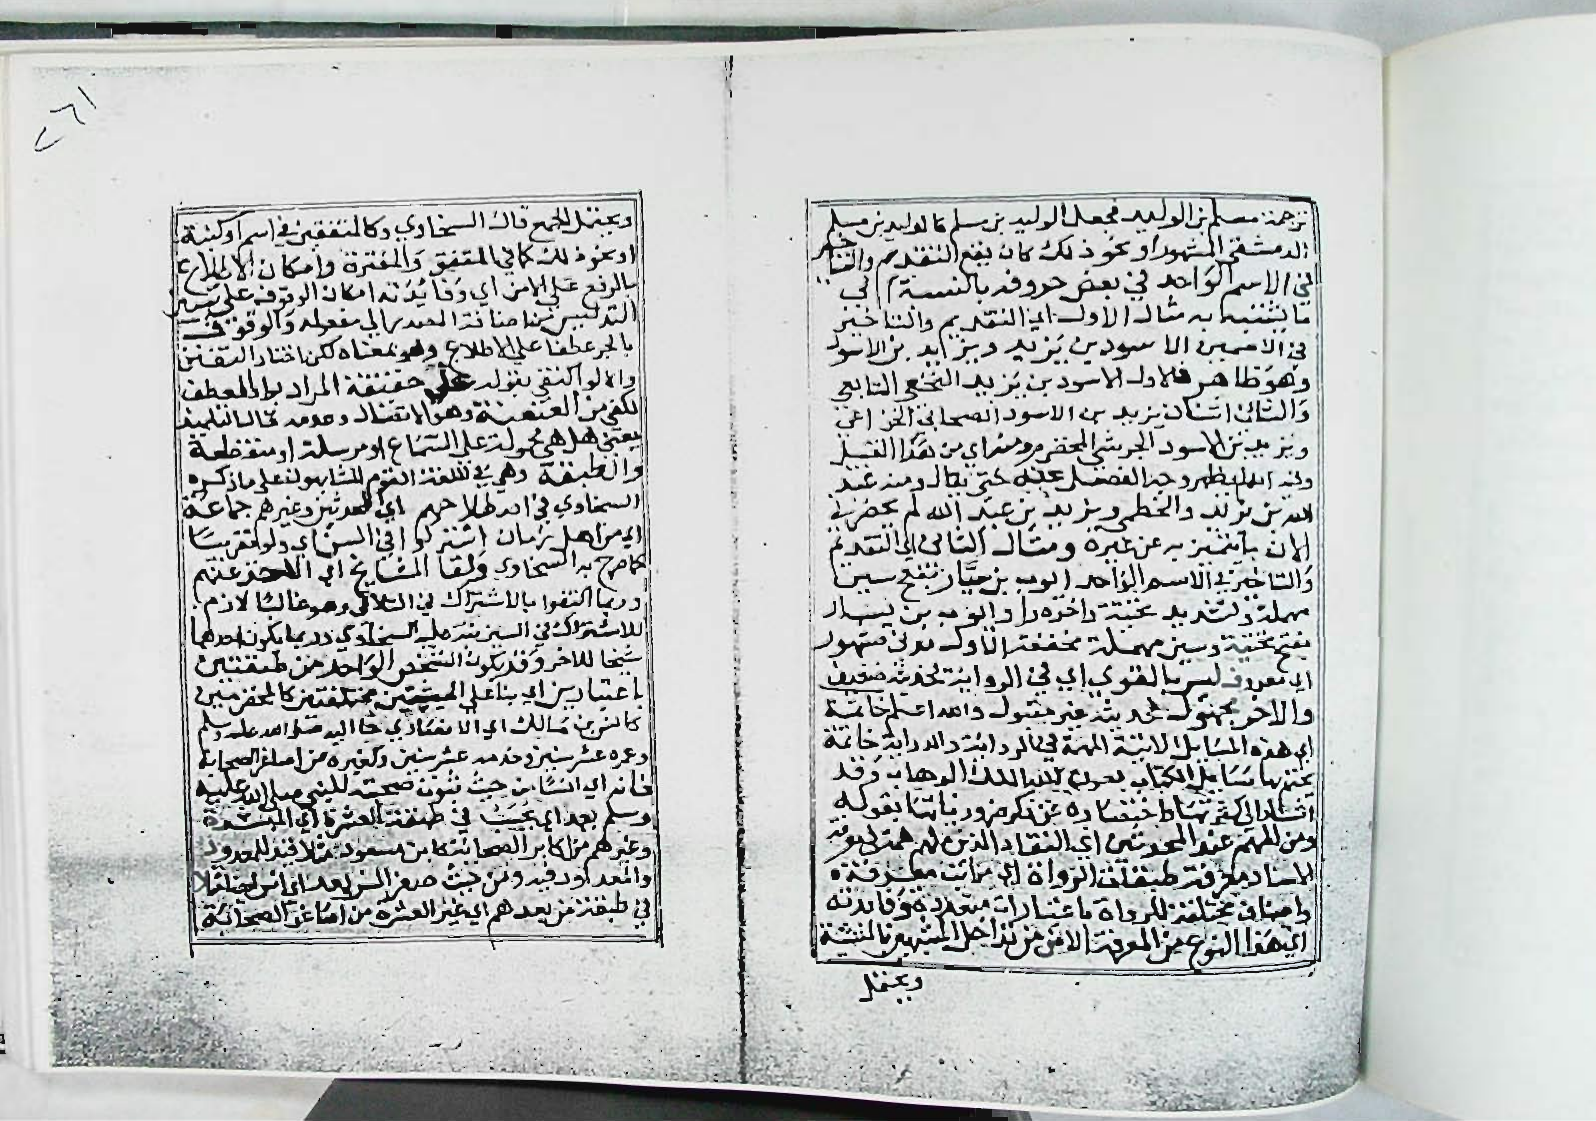 ترجمة مسلم بن الوليد فجعل الوليد بن مسلم كالوليد بن مسلم
الدمشقي المشهور او نحو ذلك كان يقع التقديم والتاخير
في الاسم الواحد في بعض حروفه بالنسبة الي
ما يشتبه به مثال الاول اي التقديم والتاخير
في الاسمين الاسود بن يزيد ويزيد بن الاسود
وهو ظاهر فالاول الاسود بن يزيد النخعي التابعي
والثاني اثنان يزيد بن الاسود الصحابي الخزاعي
ويزيد بن الاسود الجرشي المخضرم ومنه اي من هذا القبيل
يظهر وجه الفصل عنه حتى يقال ومنه عبد
الله بن يزيد الخطمي ويزيد بن عبد الله لم يحضرني
الان ما يتميز به عن غيره ومثال الثاني اي التقديم
والتاخير في الاسم الواحد ايوب بن سيار بفتح سين
مهملة وتشديد تحتية واخره را وايوب بن يسار
بفتح تحتية وسين مهملة مخففة الاول مدني مشهور
اي معروف ليس بالقوي اي في الرواية لحديثه ضعيف
والاخر مجهول فحديثه غير مقبول والله اعلم خاتمة
اي هذه المسايل الاتية المهمة في الرواية والدراية خاتمة
يختم بها مسايل الكتاب بعون الملك الوهاب وقد
اشار الى كثرتها واختصاره عن ذكر مزود بقوله
ومن المهم عند المحدثين اي النقاد الذين لهم همة في
الاسناد معرفة طبقات الرواة اي مراتب معرفة
واصناف مختلفة للرواة باعتبارات متعددة وفايدته
اي هذا النوع من المعرفة الامن من تداخل المشتبهين بالنسبة
ويحتمل
٢٦١
ويحتمل الجمع قال السخاوي وكالمتفقين في اسم او كنية
او نحو ذلك كما في المتفق والمفترق وامكان الاطلاع
بالرفع على الامن اي وفايدته امكان الوقوف على تبيين
التدليس من اضافة المصدر الي مفعوله والوقوف
بالجر عطفا على الاطلاع وهو بمعناه لكن اختار التفنن
والا لو اكتفى بقوله على حقيقة المراد بالعطف
لكفى من العنعنة وهو الاتصال وعدمه قال التلميذ
يعني هل هي محمولة على السماع او مرسلة او منقطعة
والطبقة وهي في اللغة القوم المتشابهون على ما ذكره
السخاوي في اصطلاحهم اي المحدثين وغيرهم جماعة
اي من اهل زمان اشتركوا في السن اي ولو تقريبا
كما صرح به السخاوي ولقا المشايخ اي الاخذ عنهم
وربما اكتفوا بالاشتراك في التلاقي وهو غالبا لازم
للاشتراك في السن نقله السخاوي وربما يكون احدهما
شيخا للاخر وقد يكون الشخص الواحد من طبقتين
باعتبارين اي بنا على الحيثيتين مختلفتين كالمخضرمين
كانس بن مالك اي الانصاري جا اليه صلى الله عليه وسلم
وعمره عشر سنين وخدمه عشر سنين وكغيره من اصاغر الصحابة
فانه اي انسا من حيث ثبوت صحبته للنبي صلى الله عليه
وسلم يعد اي يحسب في طبقة العشرة اي المبشرة
وغيرهم من اكابر الصحابة كابن مسعود مثلا فيه المعدود
والمعدود فيه ومن حيث صغر السن يعد اي انس ايضا
في طبقة من بعدهم اي غير العشرة من اصاغر الصحابة